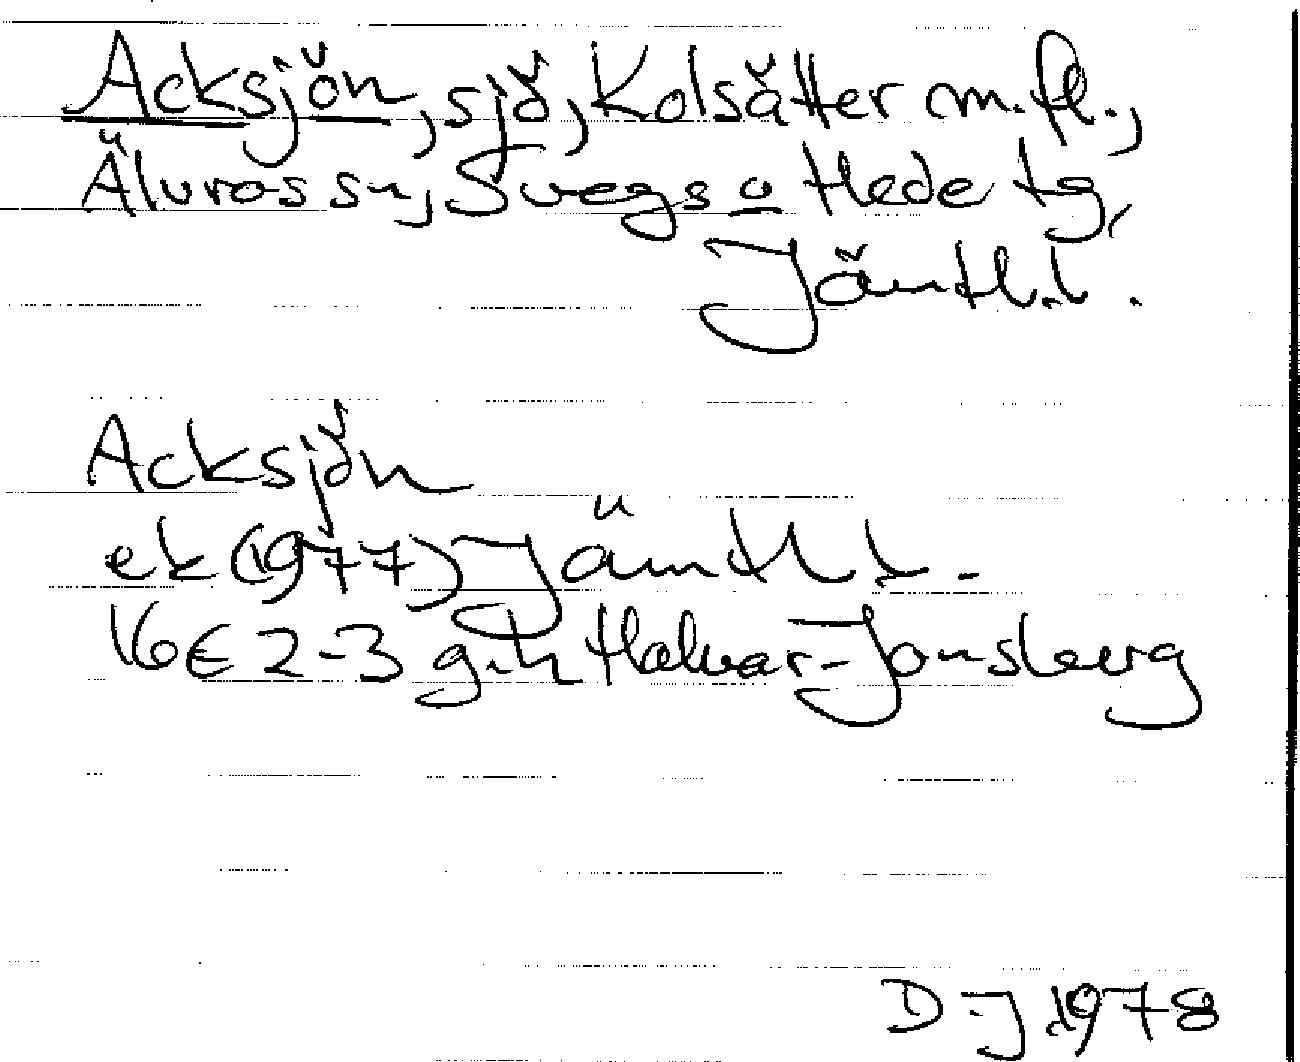 Acksjön, sjö, Kolsätter m.fl.,
Älvros sn, Svegs o Hede tg,
Jämtl.l.
Acksjön
ek (1977) Jämtl l.
16E 2-3 g-h Halvar-Jonsberg
D-J 1978